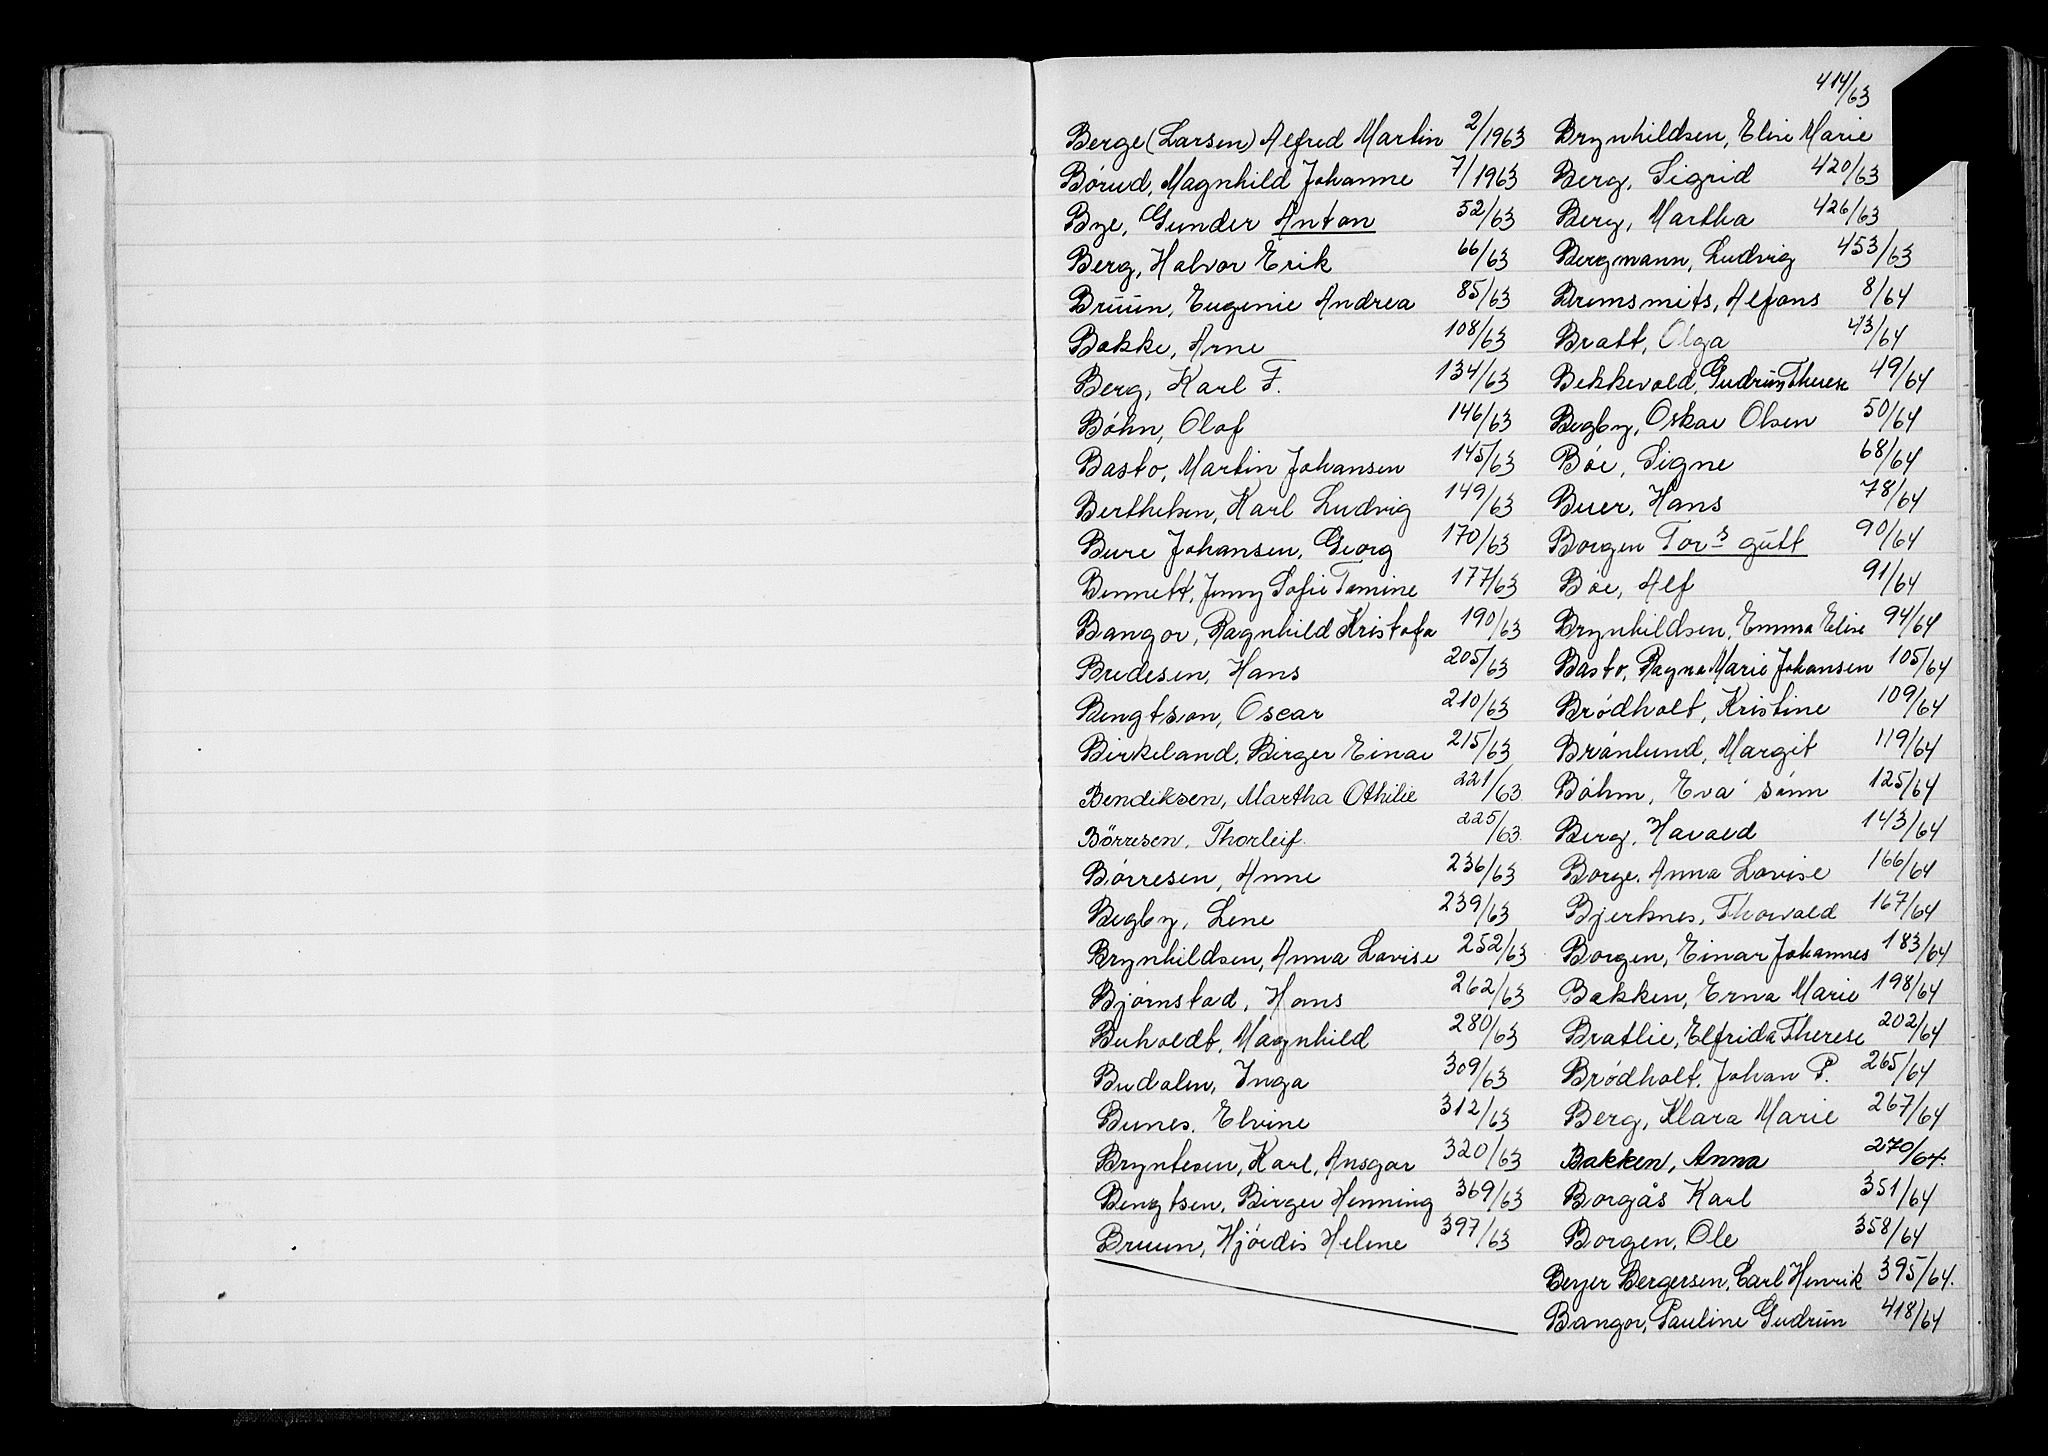 Berge (Larsen) Alfred Martin 2/1963
Börud, Magnhild Johanne 7/1963
Bye, Gunder Anton 52/63
Berg, Halvor Erik 66/63
Bruun, Eugenie Andrea 85/63
Bakke, Arne 108/63
Berg, Karl F. 134/63
Böhn, Olaf 146/63
Basto, Martin Johansen 145/63
Berthelsen, Karl Ludvig 149/63
Bure Johansen, Georg 170/63
Bennett, Jenny Sofie Tomine 177/63
Bangor, Ragnhild Kristofa 190/63
Bredesen, Hans 205/63
Bengtson, Oscar 210/63
Birkeland, Birger Einar 215/63
Bendiksen, Martha Othilie 221/63
Börresen, Thorleif. 225/63
Börresen, Anne 236/63
Begby, Lene 239/63
Brynhildsen, Anna Lovise 252/63
Bjørnstad, Hans 262/63
Buholdt, Magnhild 280/63
Budalen, Inga 309/63
Bunes, Elvine 312/63
Bryntesen, Karl, Ansgar 320/63
Bengtsen, Birger Henning 369/63
Bruun, Hjördis Helene 397/63
414/63
Brynhildsen, Elise Marie
Berg, Sigrid 420/63
Berg, Martha 426/63
Bergmann, Ludvig 453/63
Bremsmits, Alfons 8/64
Bratt, Olga 43/64
Bekkevold, Gudrun Therese 49/64
Begby, Oskar Olsen 50/64
Böe, Signe 68/64
Buer, Hans 78/64
Borgen Tor's gutt 90/64
Böe, Alf 91/64
Brynhildsen, Emma Elise 94/64
Basto, Ragna Marie Johansen 105/64
Brödholt, Kristine 109/64
Brånlund, Margit 119/64
Böhm, Eva' sönn 125/64
Berg, Harald 143/64
Borge, Anna Lovise 166/64
Bjerknes, Thorvald 167/64
Borgen, Einar Johannes 183/64
Bakken, Erna Marie 198/64
Bratlie, Elfrida Therese 202/64
Brödholt, Johan P. 265/64
Berg, Klara Marie 267/64
Bakken, Anna 270/64.
Borgås Karl 351/64
Borgen, Ole 358/64
Beyer Bergersen, Carl Henrik 395/64.
Bangor, Pauline Gudrun 418/64